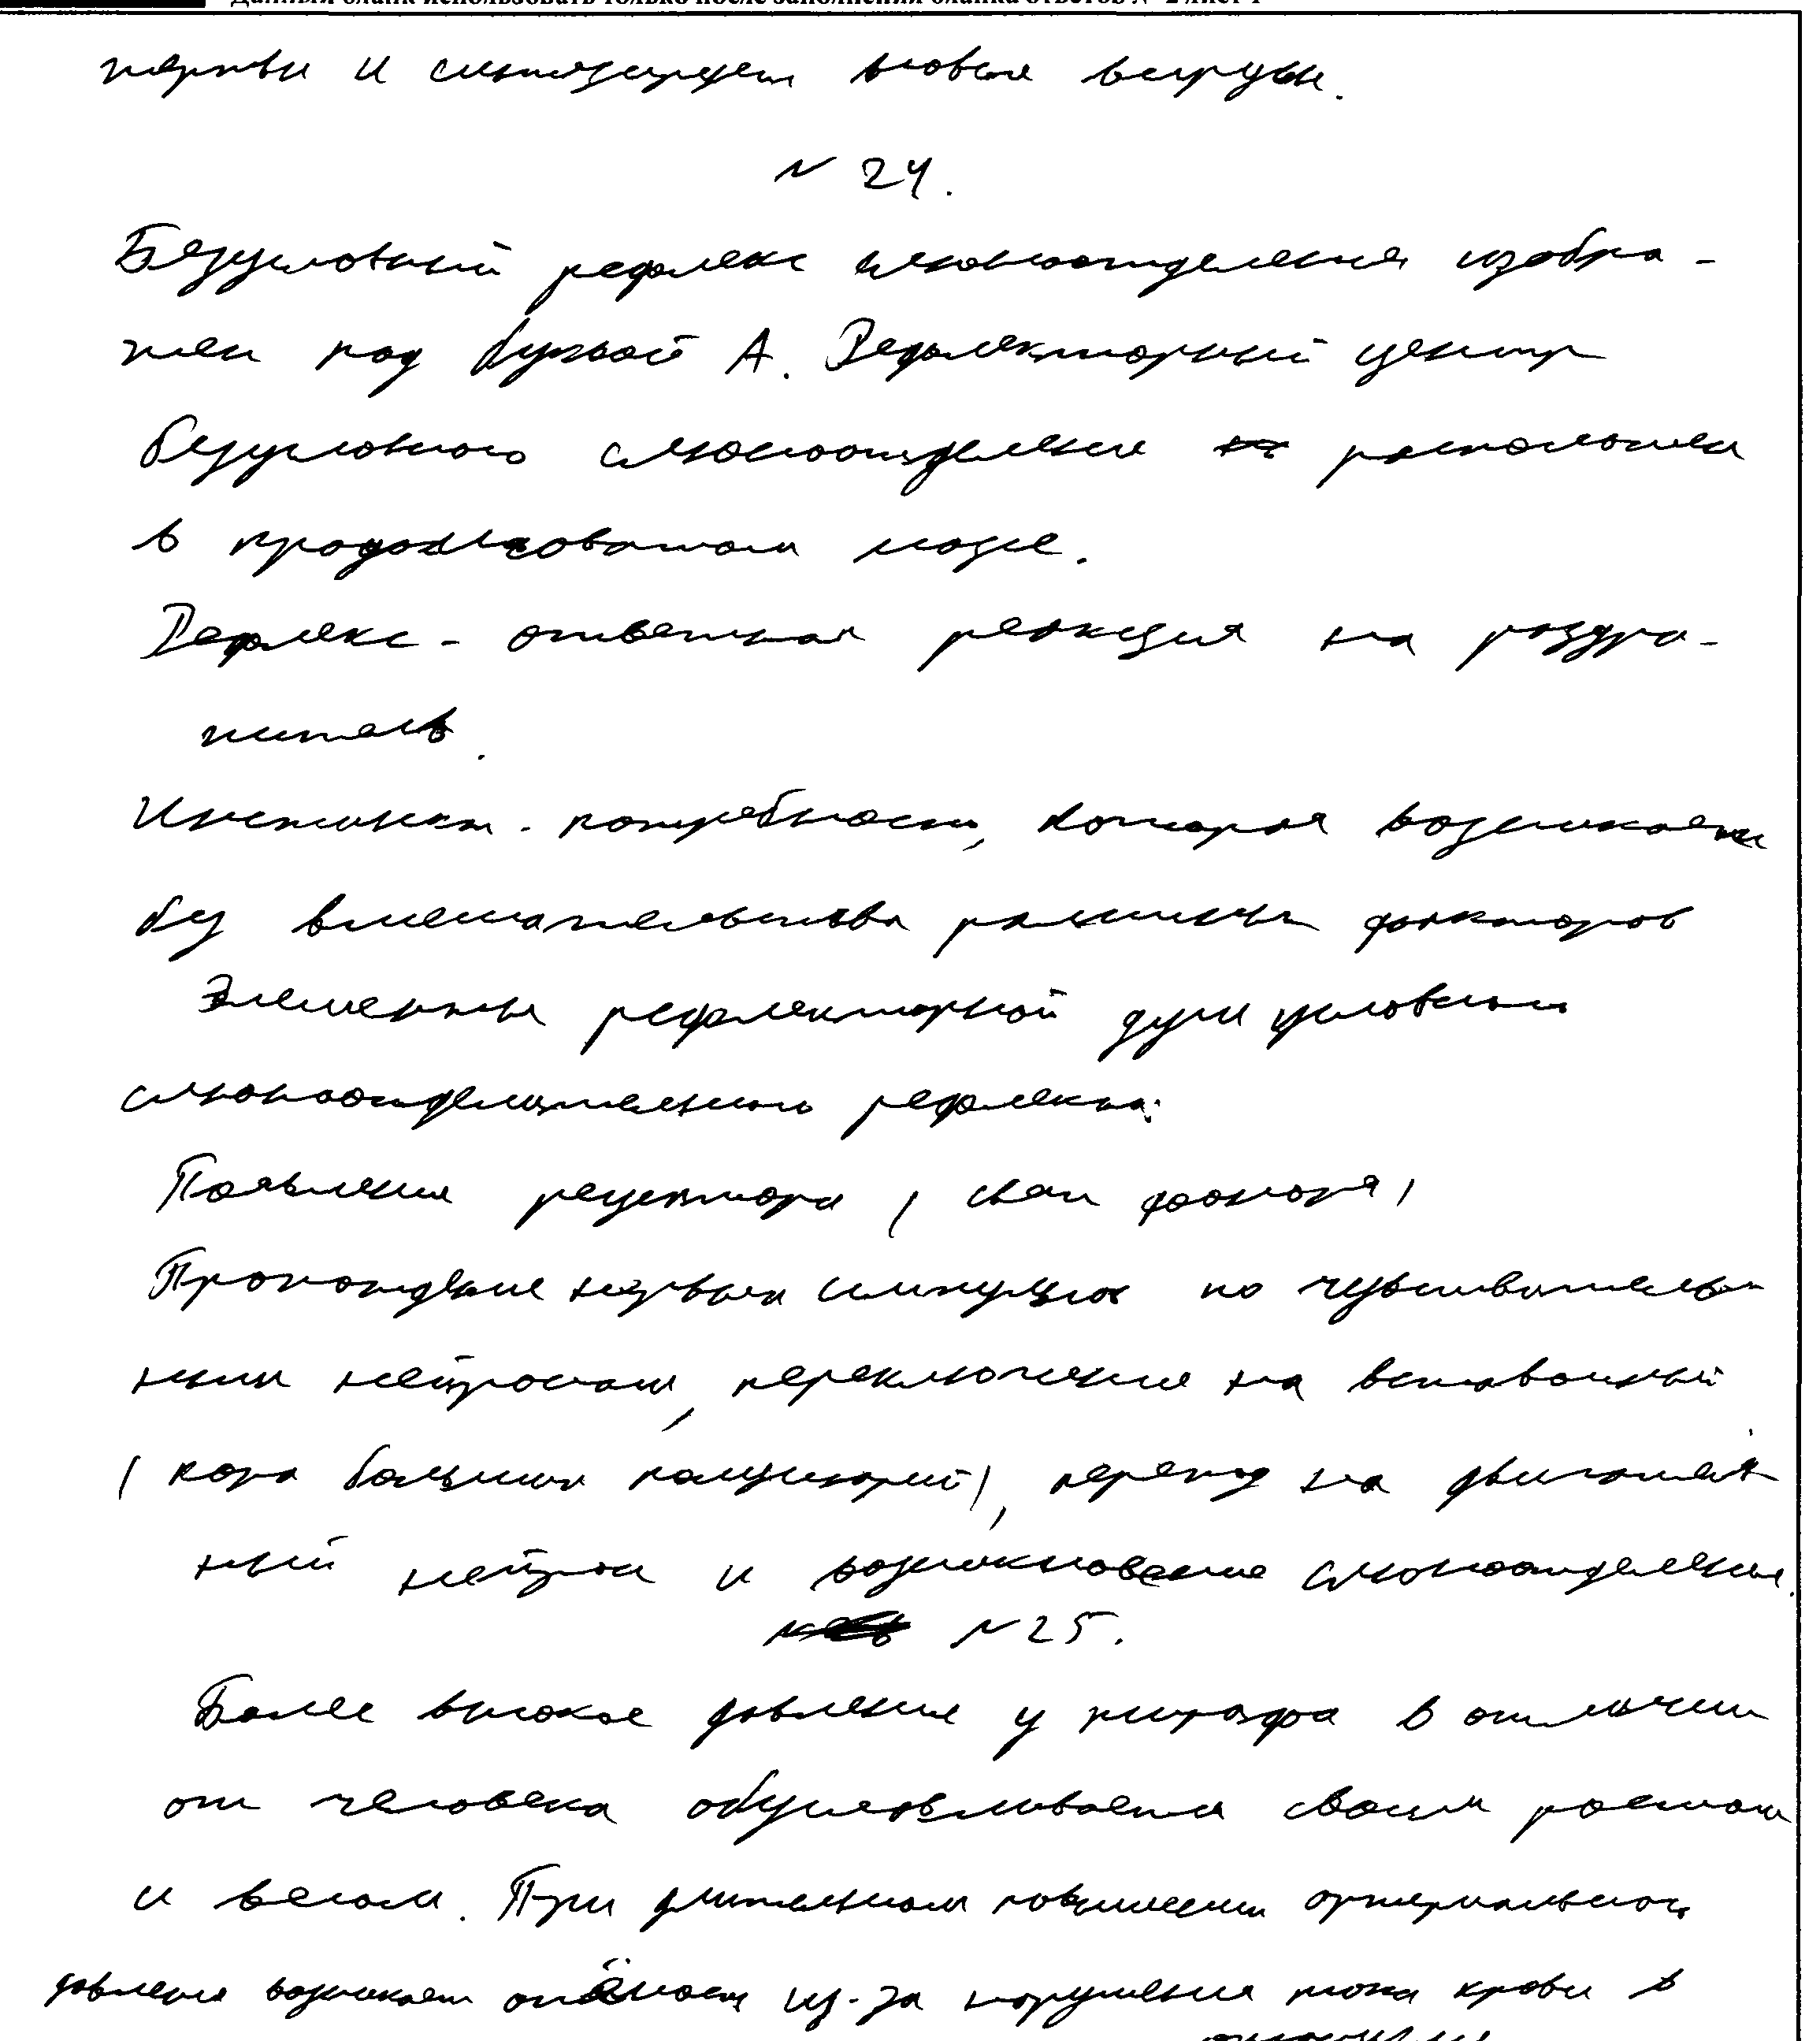 Данный бланк использовать только после заполнения бланка ответов № 2 лист 1
и синтезирует новые вирусы.
№ 24.
Безусловный рефлекс слюноотделения изобра-
жен под буквой А. Рефлекторный центр
безусловного слюноотделения расположен
в продолговатом мозге.
Рефлекс - ответная реакция на раздра-
житель.
Инстинкт - потребность, которая возникает
без вмешательства различных факторов
Элементы рефлекторной дуги условного
слюноотделительного рефлекса:
Появление рецептора (свет фонаря)
Прохождение нервных импульсов по чувствитель-
ным нейронам, переключение на вставочный
(кора больших полушарий), переход на двигатель-
ный нейрон и возникновение слюноотделения.
№ 25.
Более высокое давление у жирафа в отличии
от человека обуславливается своим ростом
и весом. При длительном повышении артериального
давления возникает опасность из-за нарушения тока крови в